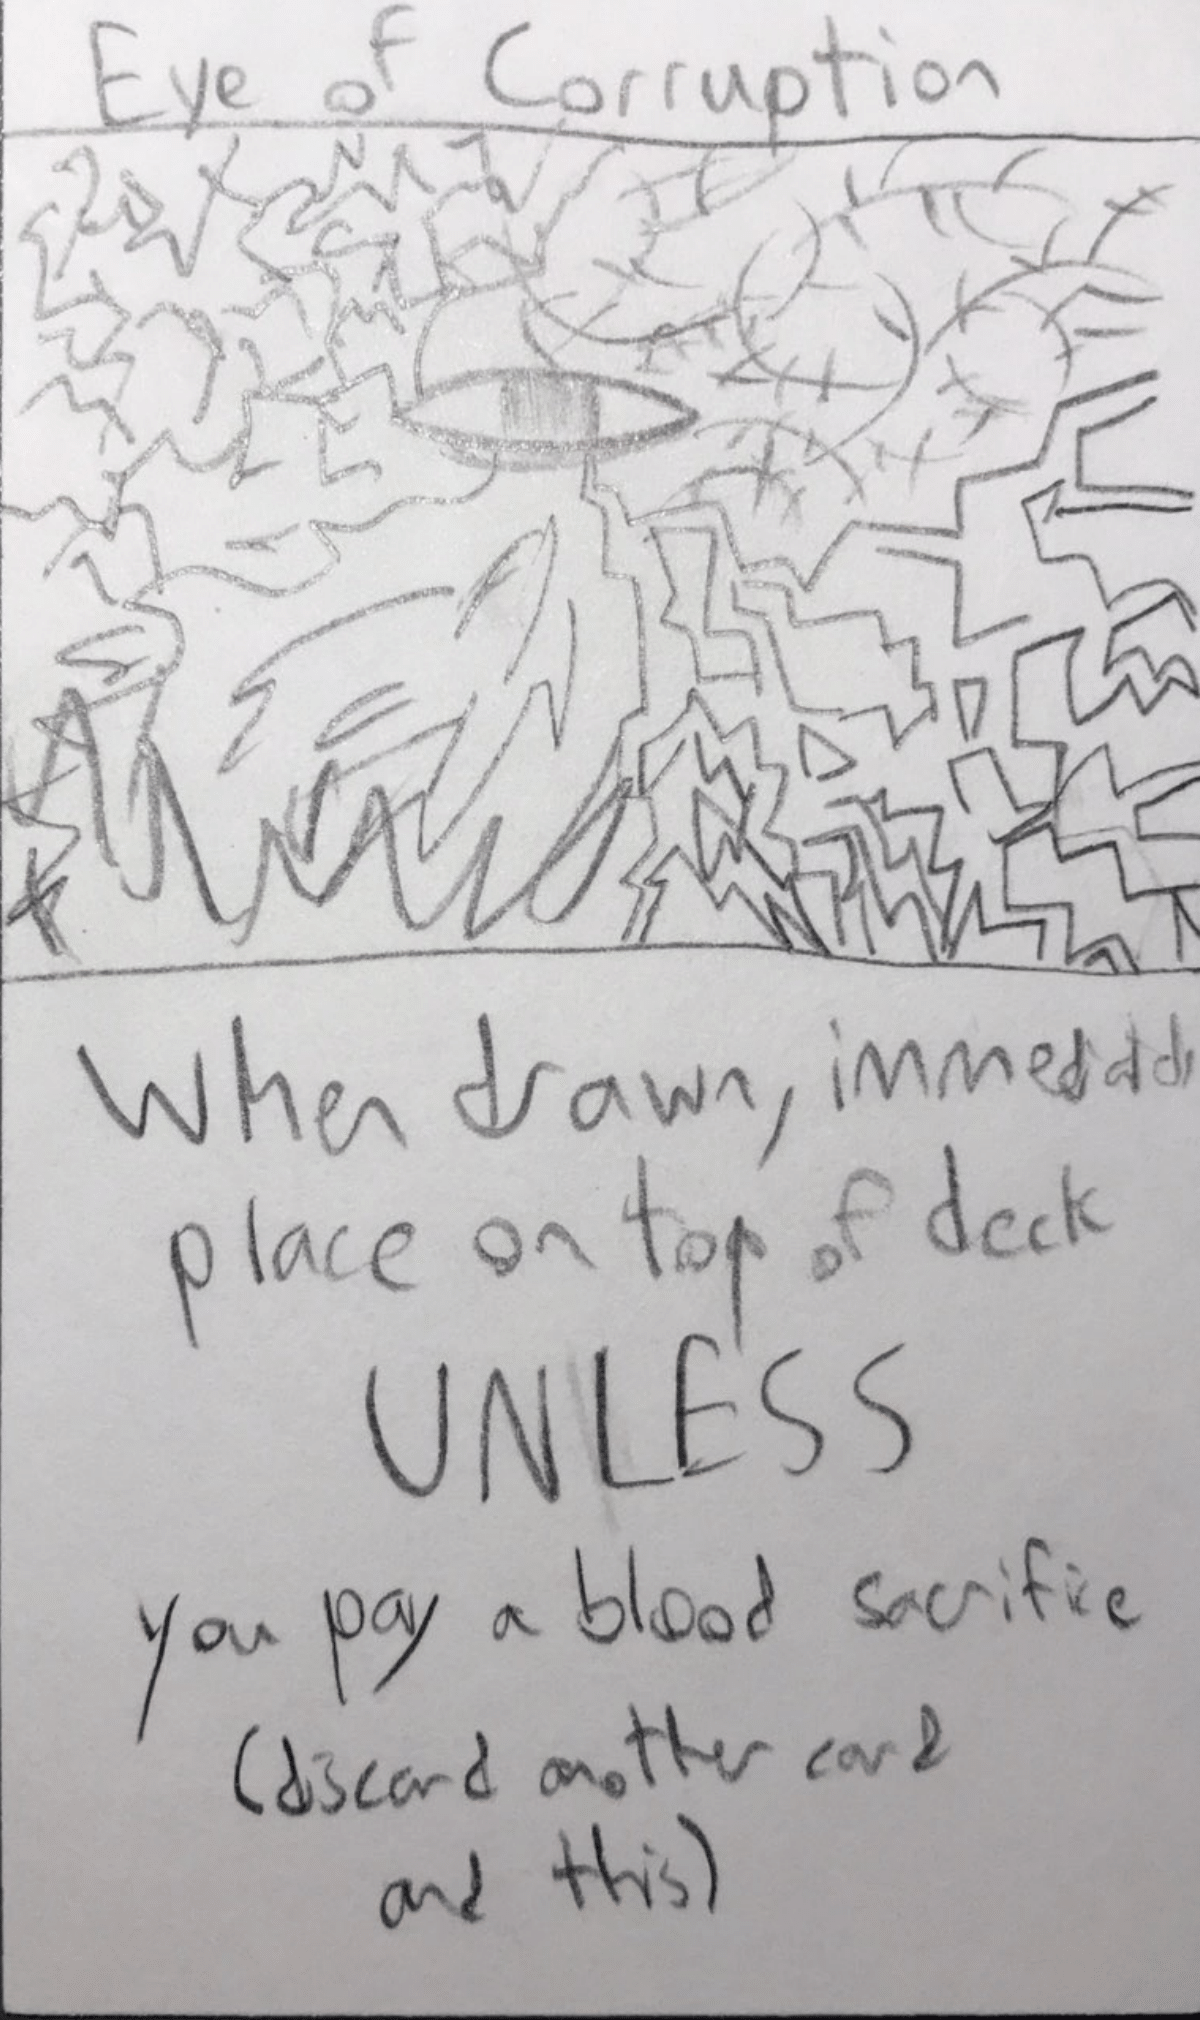 Eye of Corruption
When drawn,
place on top of deck
UNLESS
you pay a blood sacrifice
(discard another card
and this)